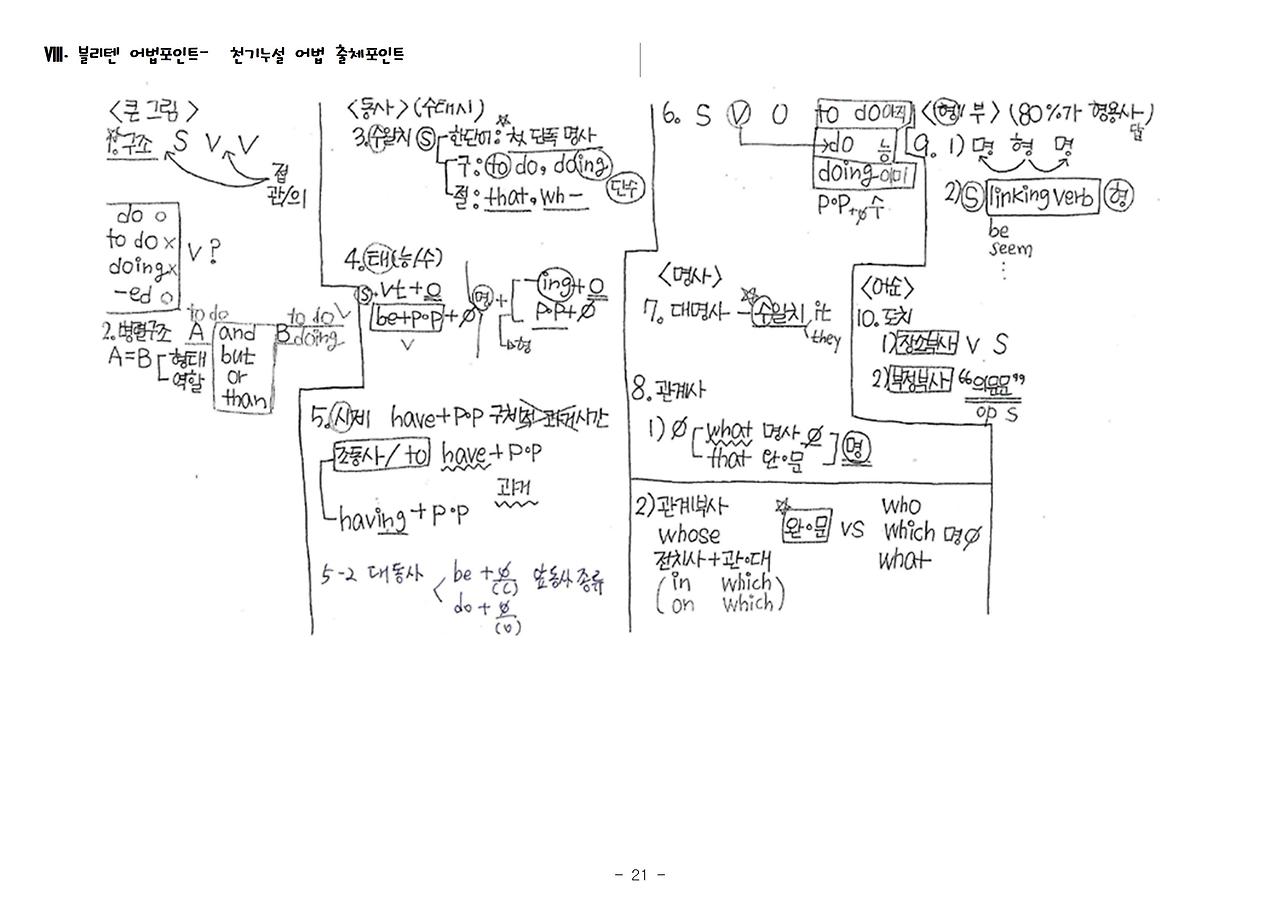 Ⅷ. 블리텐 어법포인트- 천기누설 어법 출체포인트
<큰 그림>
1. 구조 S V V
접
관/의
do o
to do x
doing x
-ed o
V?
2. 병렬구조 A and B
to do
to do
doing
V
but
or
than
A=B 형태
역할
<동사> (수태시)
3. 수일치 Ⓢ 한단어: 첫 단독 명사
구: to do, doing
절: that, wh-
단수
4. 태(능/수)
Ⓢ. Vt + O
be+p·p + ∅
V
명 + ing + O
p·p + ∅
형
5. 시제 have + p·p 구체적 과거시간
조동사 / to have + p·p
과거
having + p·p
5-2 대동사 be + ∅ 앞동사 종류
(C)
do + ∅
(O)
6. S V O to do 아직
do 능
doing 이미
p·p + ∅ 수
<명사>
7. 대명사 - 수일치 it
they
8. 관계사
1) ∅ what 명사 ∅
that 완·문
명
2) 관계부사
whose
전치사 + 관·대
(in which)
(on which)
완·문 VS
who
which 명∅
what
<형/부> (80%가 형용사)
답
9. 1) 명 형 명
2) Ⓢ linking verb 형
be
seem
⋮
<어순>
10. 도치
1) 장소부사 V S
2) 부정부사 “의문문”
op S
- 21 -